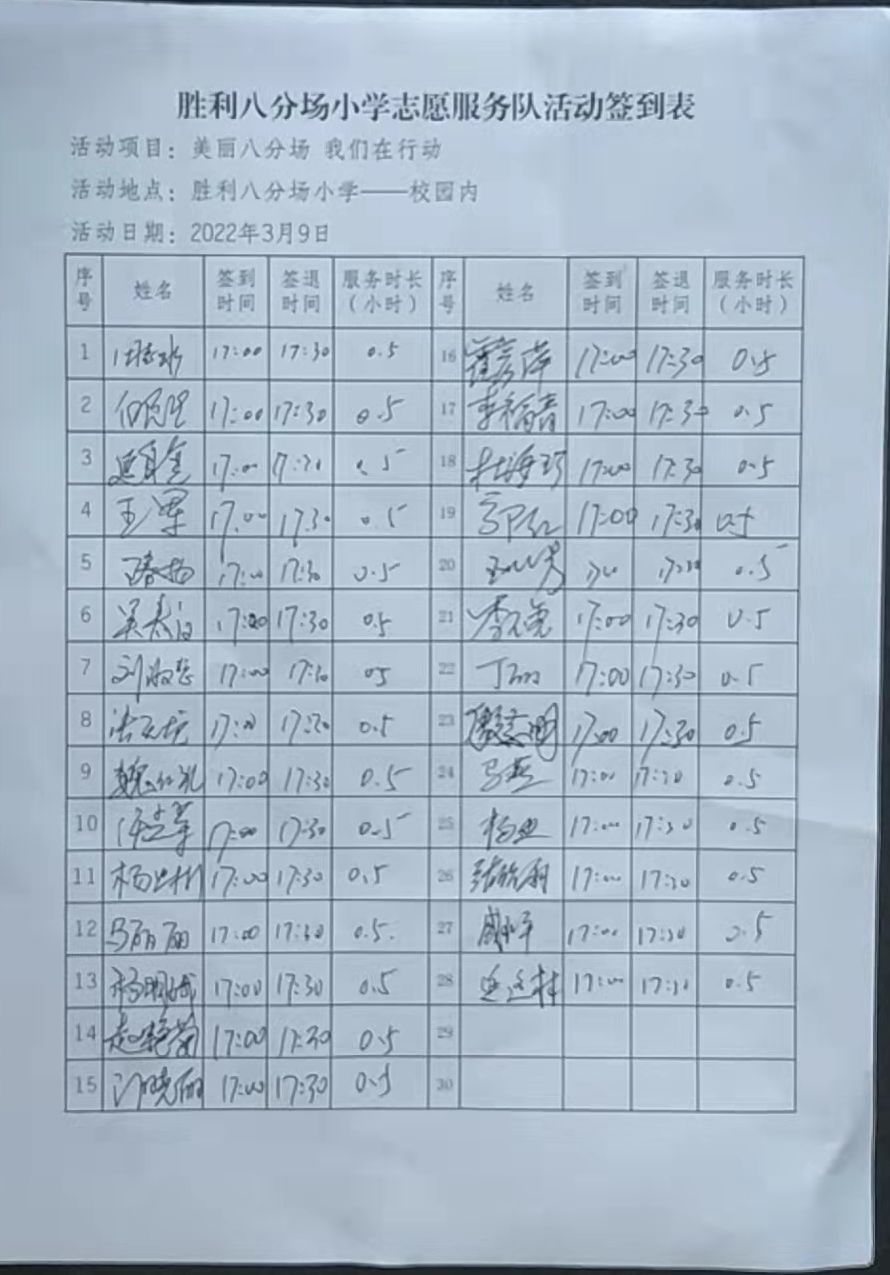 胜利八分场小学志愿服务队活动签到表
活动项目：美丽八分场 我们在行动
活动地点：胜利八分场小学——校园内
活动日期：2022年3月9日
序号 姓名 签到时间 签退时间 服务时长（小时） 序号 姓名 签到时间 签退时间 服务时长（小时）
1 17:00 17:30 0.5 16 17:00 17:30 0.5
2 17:00 17:30 0.5 17 李福春 17:00 17:30 0.5
3 17:00 0.5 18 杜海珍 17:00 17:30 0.5
4 王军 17:00 17:30 0.5 19 郭红 17:00 17:30 0.5
5 17:00 17:30 0.5 20 0.5
6 17:00 17:30 0.5 21 17:00 17:30 0.5
7 17:00 17:30 0.5 22 丁丽 17:00 17:30 0.5
8 17:00 0.5 23 17:00 17:30 0.5
9 魏红礼 17:00 17:30 0.5 24 17:00 17:30 0.5
10 17:00 17:30 0.5 25 17:00 17:30 0.5
11 17:00 17:30 0.5 26 17:00 17:30 0.5
12 马丽丽 17:00 17:30 0.5 27 17:00 17:30 0.5
13 17:00 17:30 0.5 28 17:00 17:30 0.5
14 赵艳菊 17:00 17:30 0.5 29
15 许晓丽 17:00 17:30 0.5 30